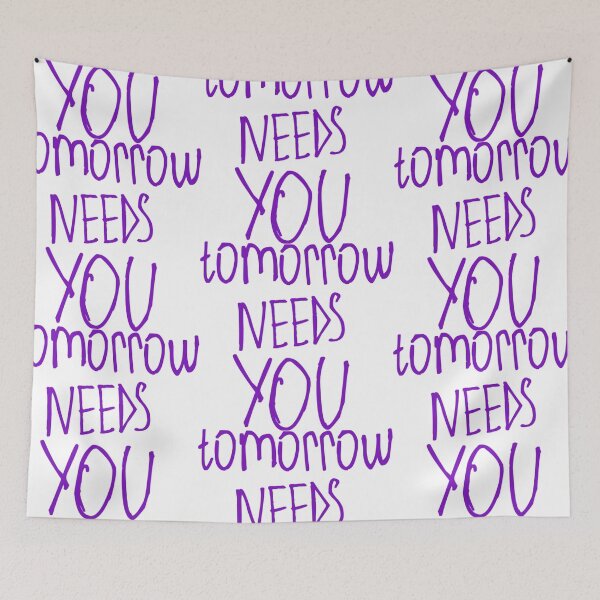 YOU
tomorrow
NEEDS
YOU
tomorrow
NEEDS
YOU
tomorrow
NEEDS
YOU
tomorrow
NEEDS
YOU
tomorrow
NEEDS
YOU
tomorrow
NEEDS
YOU
tomorrow
NEEDS
YOU